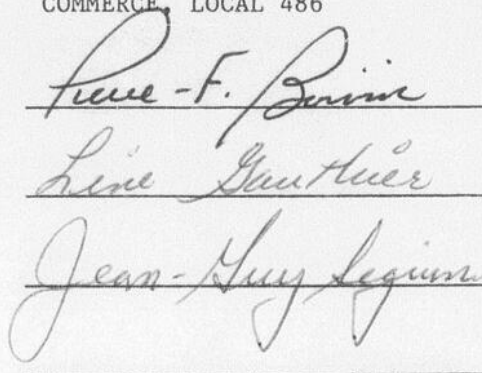 COMMERCE, LOCAL 486
Pierre-F. Boivin
Line Gauthier
Jean-Guy Seguin